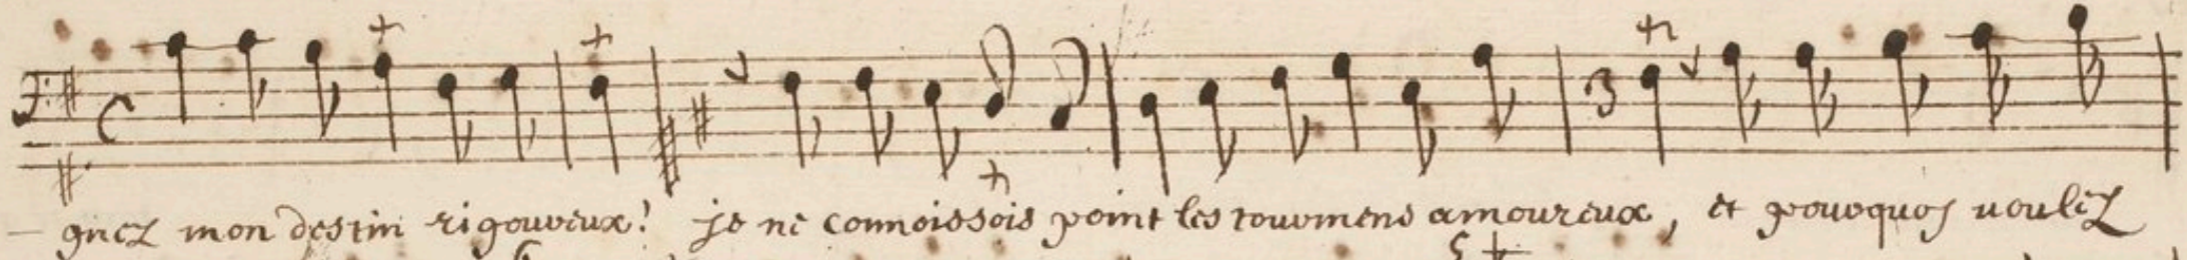 gnez mon destin rigoureux! je ne connoissois point les tourmens amoureux, et pourquoy voulez